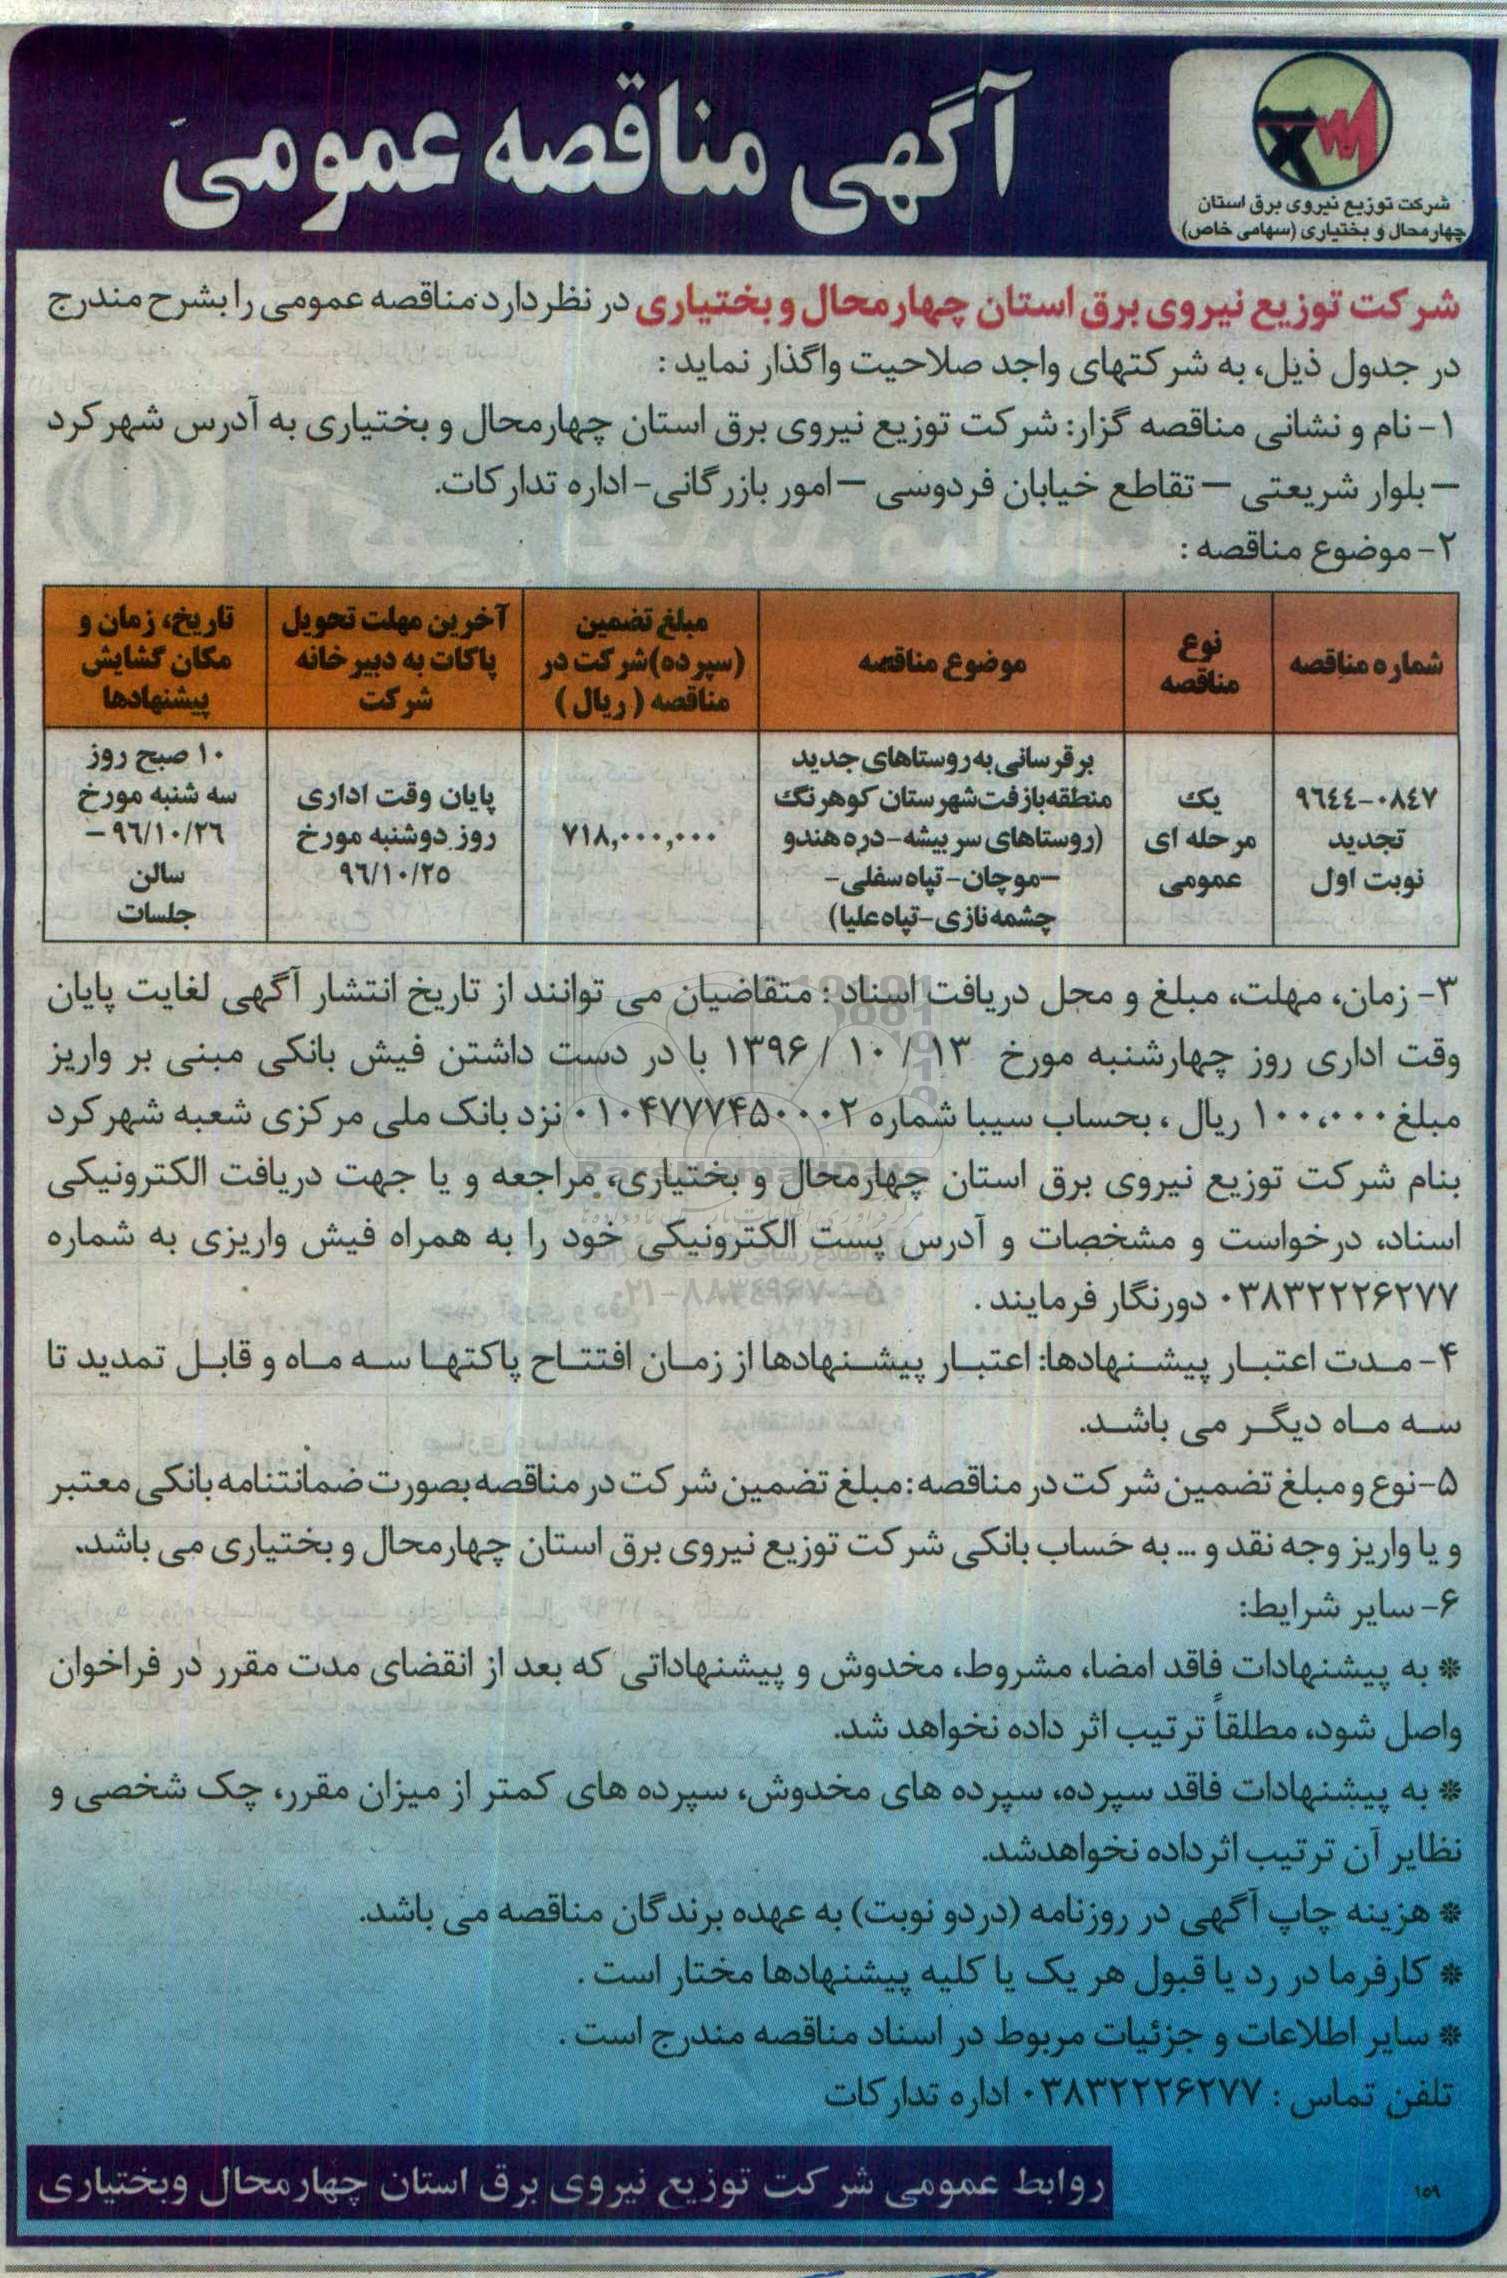 آگهی مناقصه عمومی
شرکت توزیع نیروی برق استان
چهارمحال و بختیاری (سهامی خاص)
شرکت توزیع نیروی برق استان چهارمحال و بختیاری در نظر دارد مناقصه عمومی را بشرح مندرج
در جدول ذیل، به شرکتهای واجد صلاحیت واگذار نماید :
۱- نام و نشانی مناقصه گزار: شرکت توزیع نیروی برق استان چهارمحال و بختیاری به آدرس شهرکرد
– بلوار شریعتی – تقاطع خیابان فردوسی – امور بازرگانی- اداره تدارکات.
۲- موضوع مناقصه :
شماره مناقصه
نوع
مناقصه
موضوع مناقصه
مبلغ تضمین
(سپرده)شرکت در
مناقصه ( ریال )
آخرین مهلت تحویل
پاکات به دبیرخانه
شرکت
تاریخ، زمان و
مکان گشایش
پیشنهادها
۹۶۴۴-۰۸۴۷
تجدید
نوبت اول
یک
مرحله ای
عمومی
برقرسانی به روستاهای جدید
منطقه بازفت شهرستان کوهرنگ
(روستاهای سربیشه- دره هندو
–موچان- تپاه سفلی-
چشمه نازی-تپاه علیا)
۷۱۸,۰۰۰,۰۰۰
پایان وقت اداری
روز دوشنبه مورخ
۹۶/۱۰/۲۵
۱۰ صبح روز
سه شنبه مورخ
۹۶/۱۰/۲۶ –
سالن
جلسات
۳- زمان، مهلت، مبلغ و محل دریافت اسناد : متقاضیان می توانند از تاریخ انتشار آگهی لغایت پایان
وقت اداری روز چهارشنبه مورخ ۱۳ / ۱۰ / ۱۳۹۶ با در دست داشتن فیش بانکی مبنی بر واریز
مبلغ ۱۰۰،۰۰۰ ریال ، بحساب سیبا شماره ۰۱۰۴۷۷۷۴۵۰۰۰۲ نزد بانک ملی مرکزی شعبه شهرکرد
بنام شرکت توزیع نیروی برق استان چهارمحال و بختیاری، مراجعه و یا جهت دریافت الکترونیکی
اسناد، درخواست و مشخصات و آدرس پست الکترونیکی خود را به همراه فیش واریزی به شماره
۰۳۸۳۲۲۲۶۲۷۷ دورنگار فرمایند .
۴- مدت اعتبار پیشنهادها: اعتبار پیشنهادها از زمان افتتاح پاکتها سه ماه و قابل تمدید تا
سه ماه دیگر می باشد.
۵-نوع و مبلغ تضمین شرکت در مناقصه : مبلغ تضمین شرکت در مناقصه بصورت ضمانتنامه بانکی معتبر
و یا واریز وجه نقد و ... به حساب بانکی شرکت توزیع نیروی برق استان چهارمحال و بختیاری می باشد.
۶- سایر شرایط:
* به پیشنهادات فاقد امضا، مشروط، مخدوش و پیشنهاداتی که بعد از انقضای مدت مقرر در فراخوان
واصل شود، مطلقاً ترتیب اثر داده نخواهد شد.
* به پیشنهادات فاقد سپرده، سپرده های مخدوش، سپرده های کمتر از میزان مقرر، چک شخصی و
نظایر آن ترتیب اثرداده نخواهدشد.
* هزینه چاپ آگهی در روزنامه (در دو نوبت) به عهده برندگان مناقصه می باشد.
* کارفرما در رد یا قبول هر یک یا کلیه پیشنهادها مختار است .
* سایر اطلاعات و جزئیات مربوط در اسناد مناقصه مندرج است .
تلفن تماس : ۰۳۸۳۲۲۲۶۲۷۷ اداره تدارکات
روابط عمومی شرکت توزیع نیروی برق استان چهارمحال وبختیاری
۱۵۹
ParsNamadData
۰۲۱-۸۸۳۴۹۶۷۰-۵